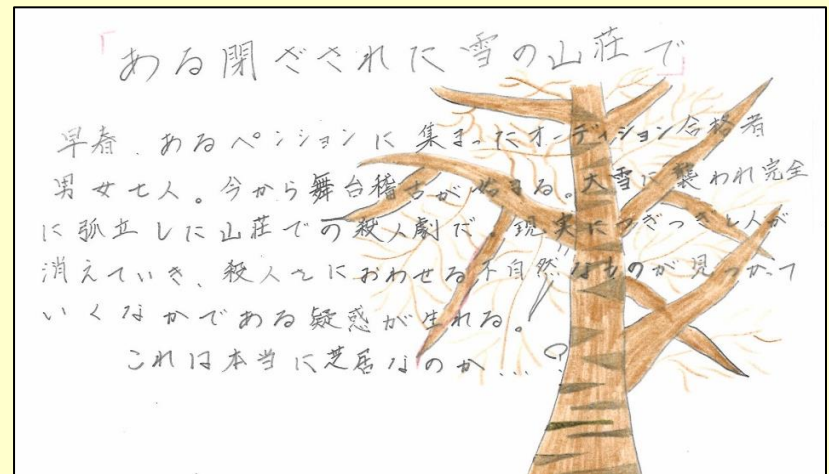 「ある閉ざされた雪の山荘で」
早春、あるペンションに集まったオーディション合格者
男女七人。今から舞台稽古が始まる。大雪に襲われ完全
に孤立した山荘での殺人劇だ。現実につぎつぎと人が
消えていき、殺人をにおわせる不自然なものが見つかって
いくなかである疑惑が生れる。
これは本当に芝居なのか…?